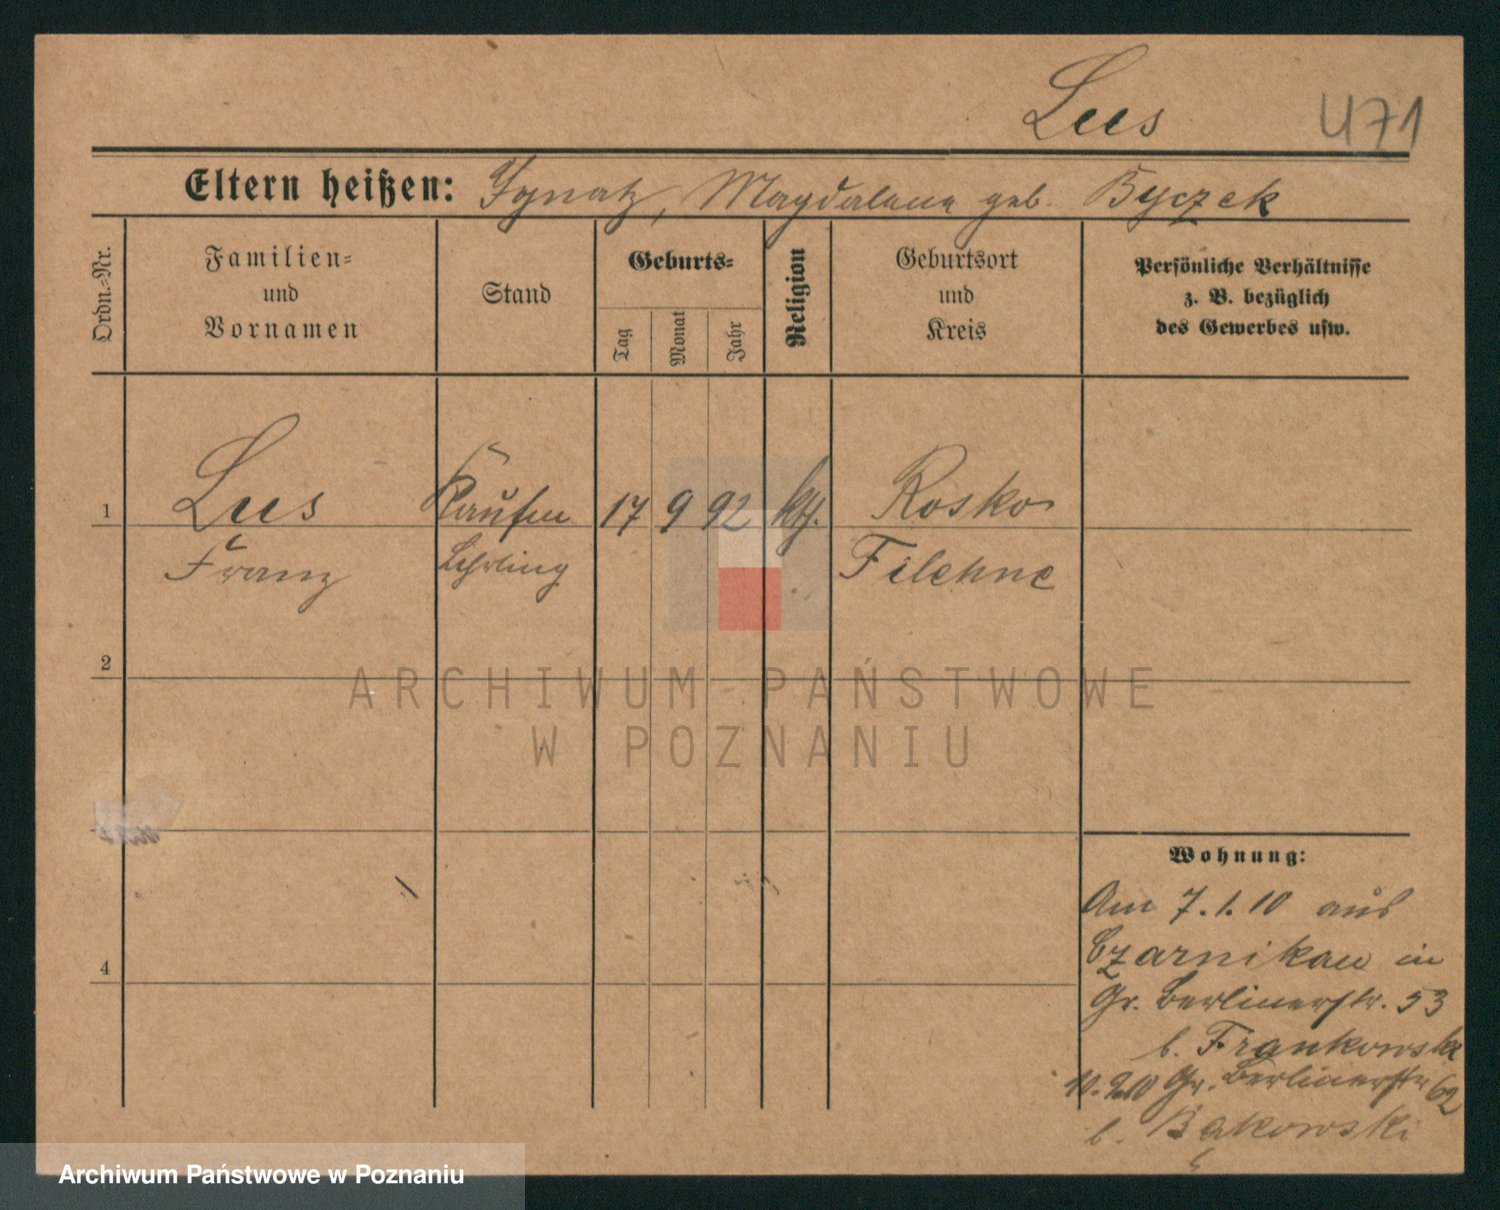 Lus
471
Eltern heißen: Ignatz, Magdalena geb. Byczek
Ordn.-Nr.
Familien-
und
Vornamen
Stand
Geburts-
Tag
Monat
Jahr
Religion
Geburtsort
und
Kreis
Persönliche Verhältnisse
z. B. bezüglich
des Gewerbes usw.
1
Lus
Franz
Kaufm
Lehrling
17 9 92
kth.
Rosko
Filehne
2
4
Wohnung:
Am 7.1.10 aus
Czarnikau in
Gr. Berlinerstr. 53
b. Frankowski
10. 2.10 Gr. Berlinerstr 62
b. Bąkowski
ARCHIWUM PAŃSTWOWE
W POZNANIU
Archiwum Państwowe w Poznaniu